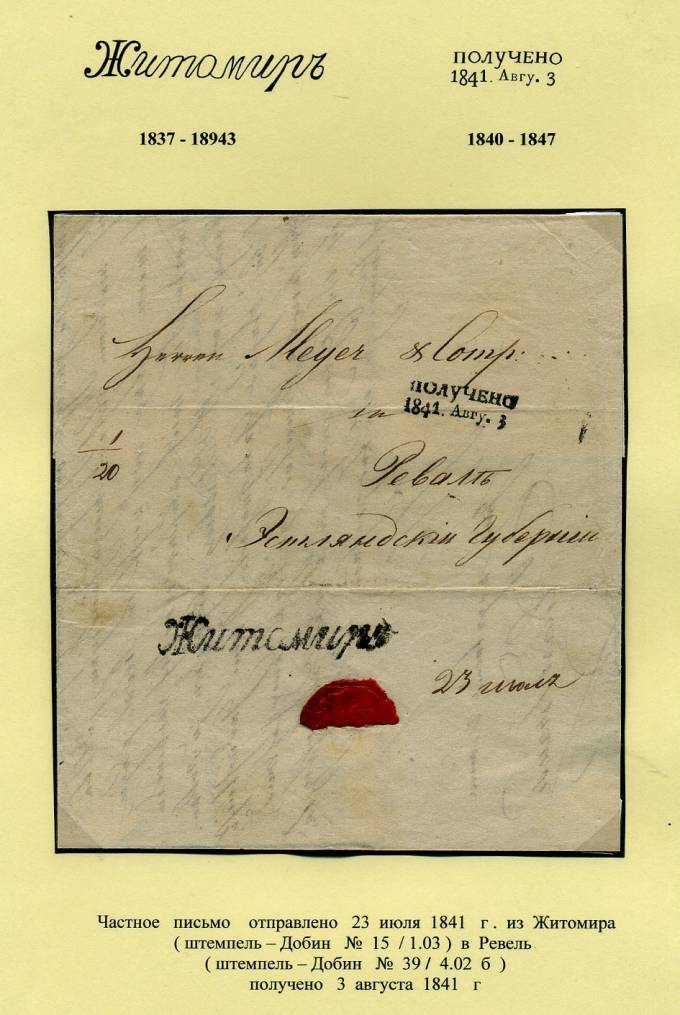 Житомиръ
ПОЛУЧЕНО
1841. Авгу. 3
1837 - 18943
1840 - 1847
Herren Meyer & Comp:
in
ПОЛУЧЕНО
1841. Авгу. 3
1
20
Ревалъ
Эстляндскiи Губернiи
Житомиръ
23 июлъ
Частное письмо отправлено 23 июля 1841 г. из Житомира
( штемпель – Добин № 15 / 1.03 ) в Ревель
( штемпель – Добин № 39 / 4.02 б )
получено 3 августа 1841 г